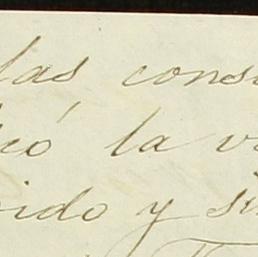 las cons
có la v
ido y si